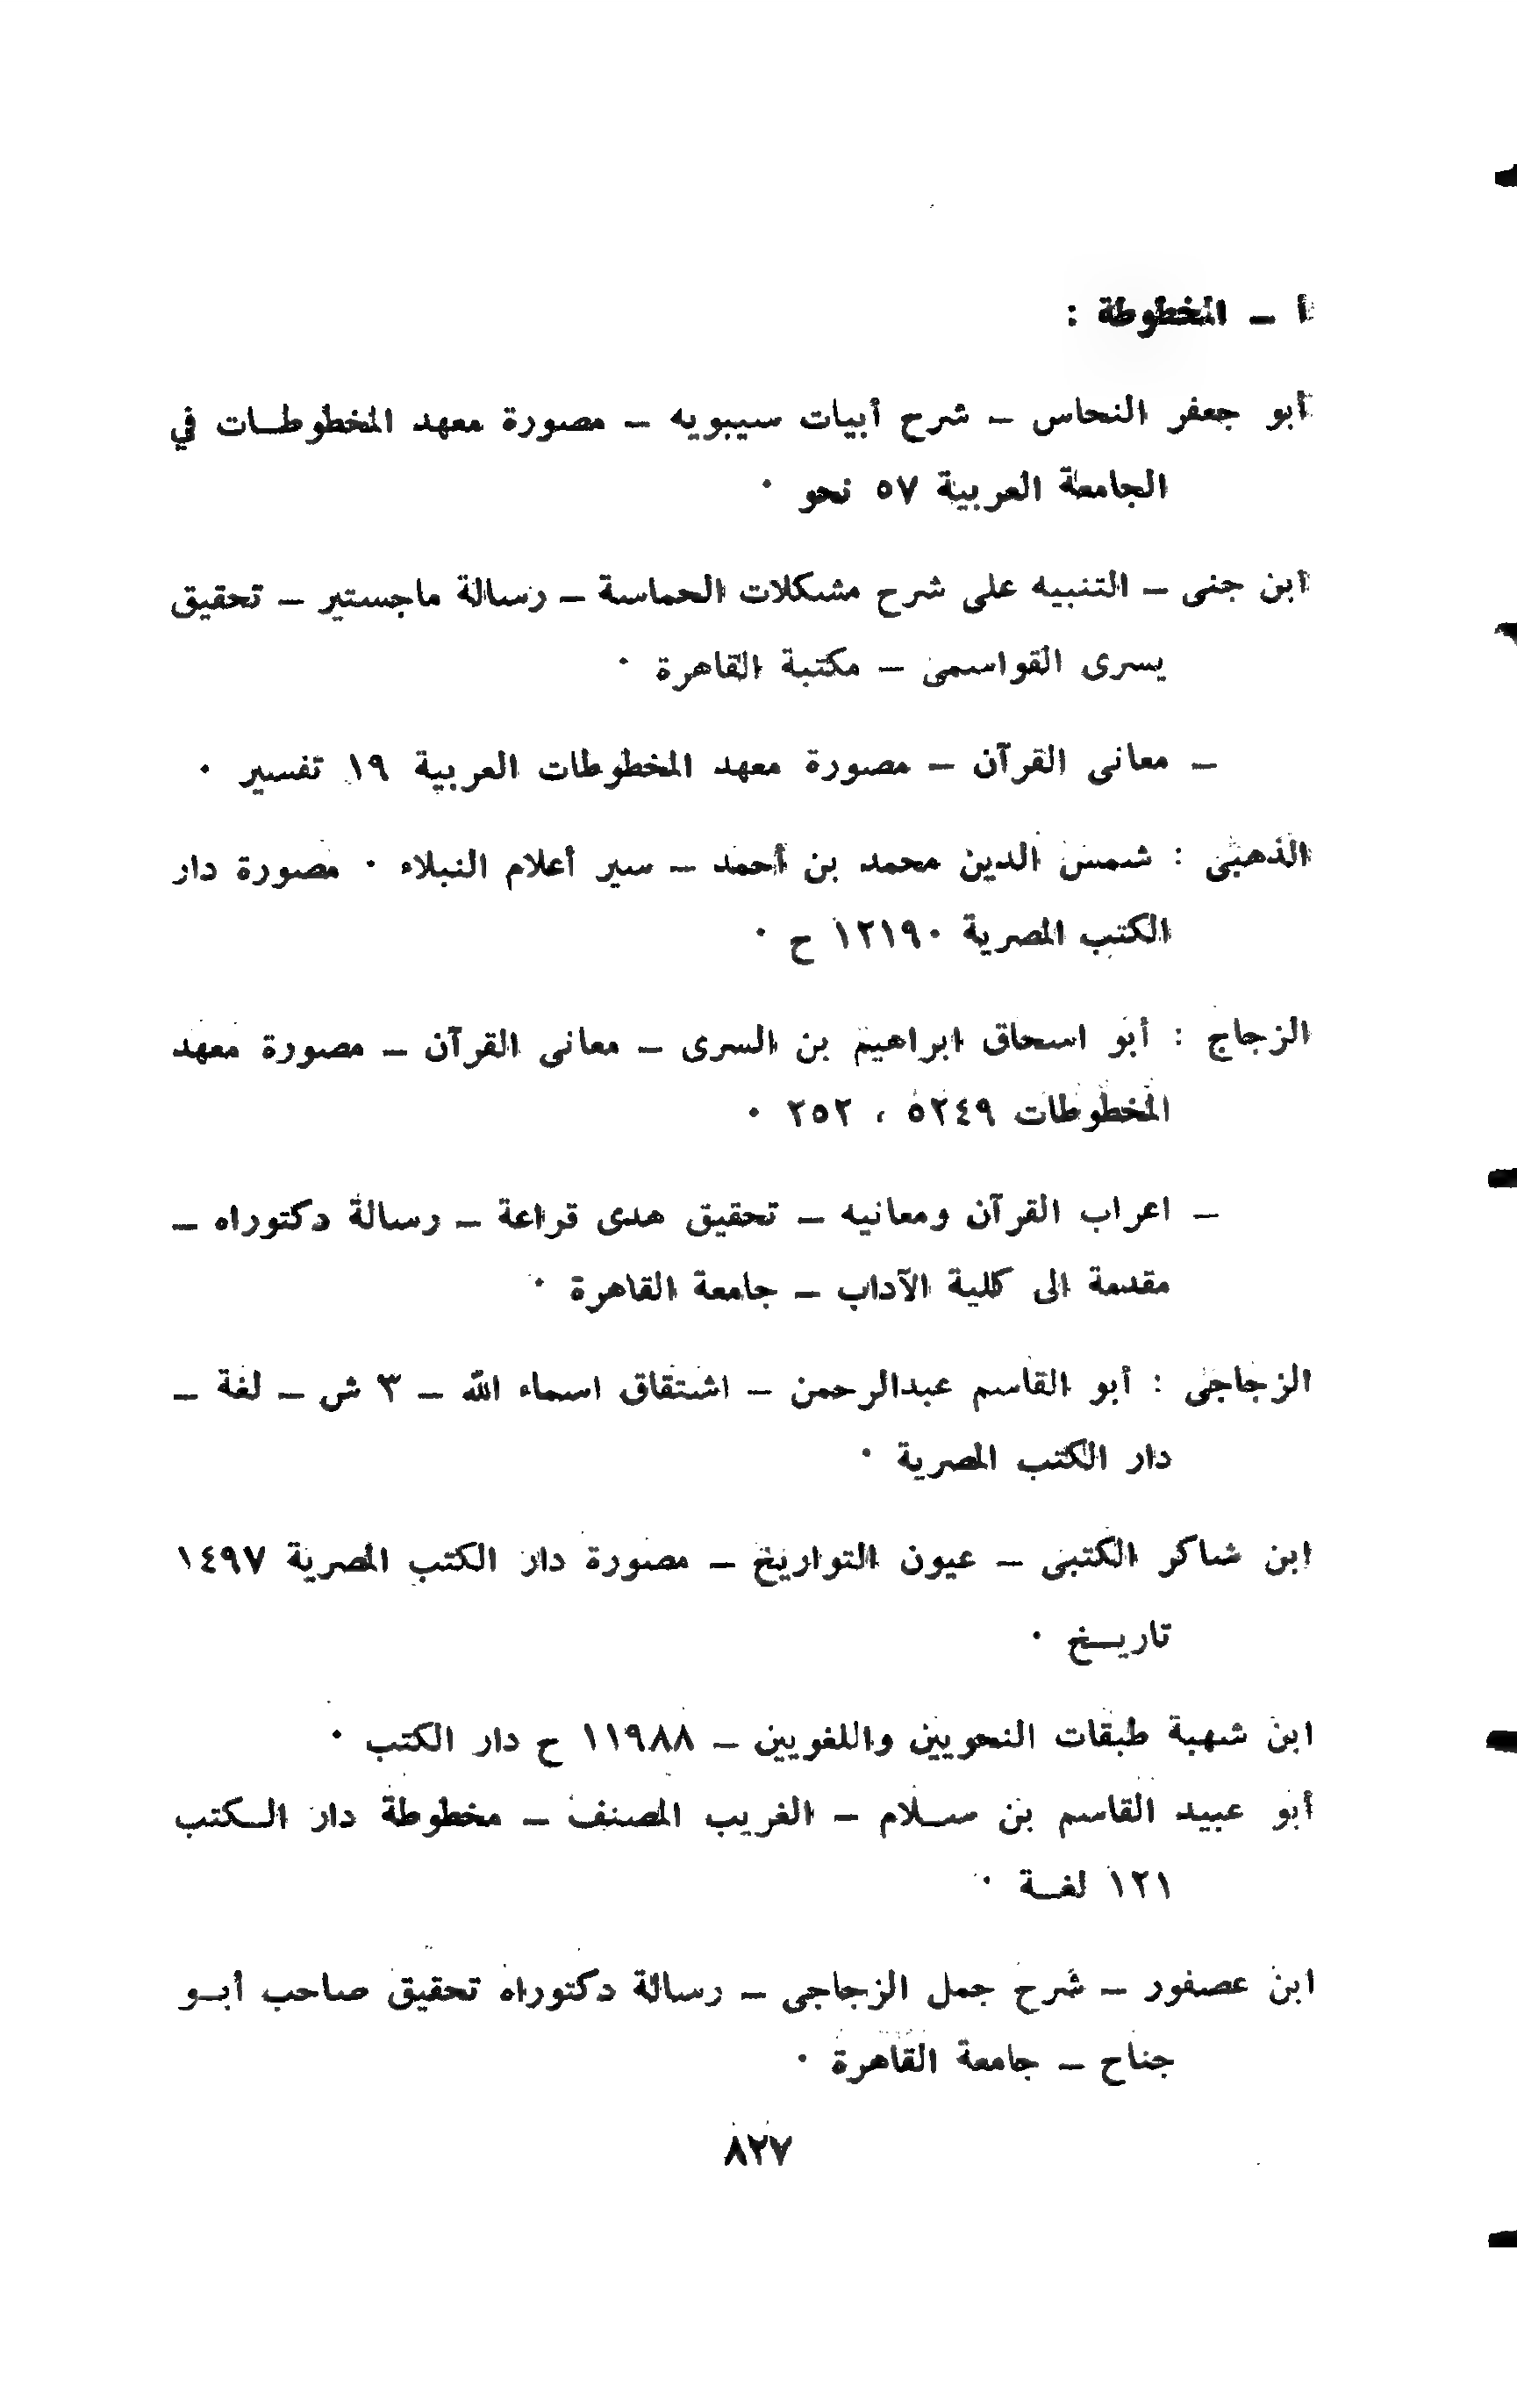 أ ــ المخطوطة :
أبو جعفر النحاس ــ شرح أبيات سيبويه ــ مصورة معهد المخطوطــات في
الجامعة العربية ٥٧ نحو ٠
ابن جنى ــ التنبيه على شرح مشكلات الحماسة ــ رسالة ماجستير ــ تحقيق
يسرى القواسمى ــ مكتبة القاهرة ٠
ــ معانى القرآن ــ مصورة معهد المخطوطات العربية ١٩ تفسير ٠
الذهبى : شمس الدين محمد بن أحمد ــ سير أعلام النبلاء ٠ مصورة دار
الكتب المصرية ١٢١٩٠ ح ٠
الزجاج : أبو اسحاق ابراهيم بن السرى ــ معانى القرآن ــ مصورة معهد
المخطوطات ٥٢٤٩ ، ٢٥٢ ٠
ــ اعراب القرآن ومعانيه ــ تحقيق هدى قراعة ــ رسالة دكتوراه ــ
مقدمة الى كلية الآداب ــ جامعة القاهرة ٠
الزجاجى : أبو القاسم عبدالرحمن ــ اشتقاق اسماء الله ــ ٣ ش ــ لغة ــ
دار الكتب المصرية ٠
ابن شاكر الكتبى ــ عيون التواريخ ــ مصورة دار الكتب المصرية ١٤٩٧
تاريــخ ٠
ابن شهبة طبقات النحويين واللغويين ــ ١١٩٨٨ ح دار الكتب ٠
أبو عبيد القاسم بن ســلام ــ الغريب المصنف ــ مخطوطة دار الــكتب
١٢١ لغــة ٠
ابن عصفور ــ شرح جمل الزجاجى ــ رسالة دكتوراه تحقيق صاحب أبــو
جناح ــ جامعة القاهرة ٠
٨٢٧